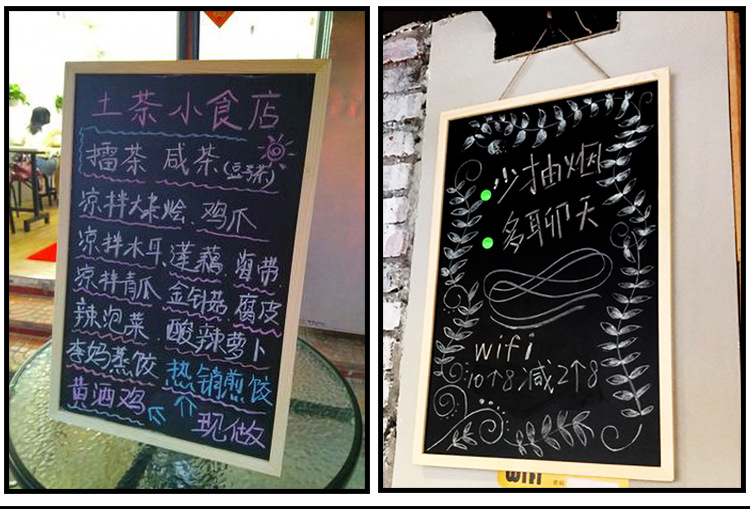 土茶小食店
擂茶 咸茶(豆子茶)
凉拌大素烩.鸡爪
凉拌木耳.莲藕 海带.
凉拌青瓜 金针菇 腐皮
辣泡菜 酸辣萝卜
李妈蒸饺 热销煎饺
黄酒鸡 现做
少抽烟
多聊天
wifi
10个8减2个8
WIFI